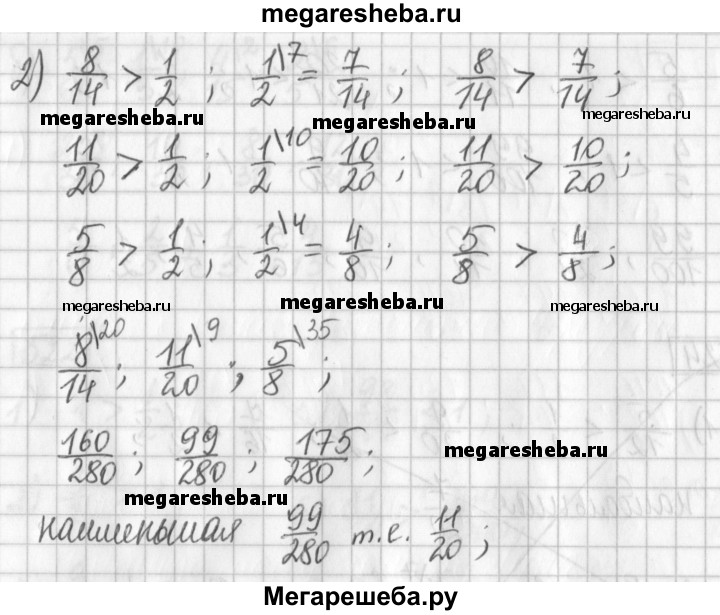 megaresheba.ru
2) 8/14 > 1/2 ; 1\7/2 = 7/14 ; 8/14 > 7/14 ;
megaresheba.ru megaresheba.ru megaresheba.ru
11/20 > 1/2 ; 1\10/2 = 10/20 ; 11/20 > 10/20 ;
5/8 > 1/2 ; 1\4/2 = 4/8 ; 5/8 > 4/8 ;
megaresheba.ru megaresheba.ru megaresheba.ru
8\20/14 ; 11\9/20 ; 5\35/8 ;
160/280 ; 99/280 ; 175/280 ; megaresheba.ru
megaresheba.ru
наименьшая 99/280 т.е. 11/20 ;
Мегарешеба.ру